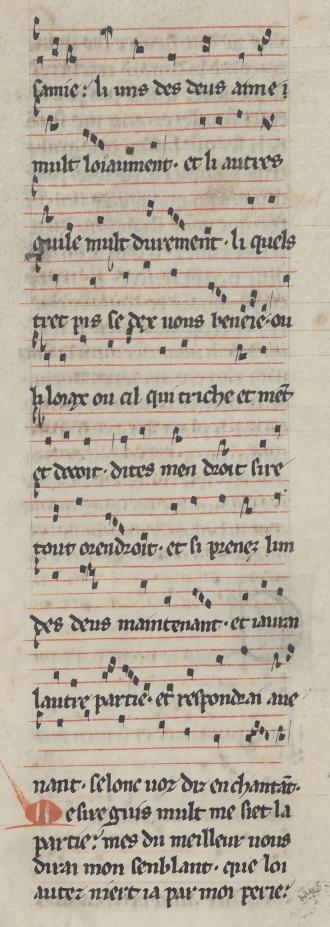 samie: li uns des deus aime i
mult loiaument· et li autres
guile mult durement· li quels
tret pis se dex vous beneie· ou
li loiax ou cil qui triche et ment
et decoit· dites men droit sire
tout orendroit· et si prenez lun
des deus maintenant· et iavrai
lautre partie· et respondrai ave
nant· selonc vor dit en chantāt·
esire guis mult me siet la
partie: mes du meilleur vous
dirai mon senblant· que loi
autez niert ia par moi perie: